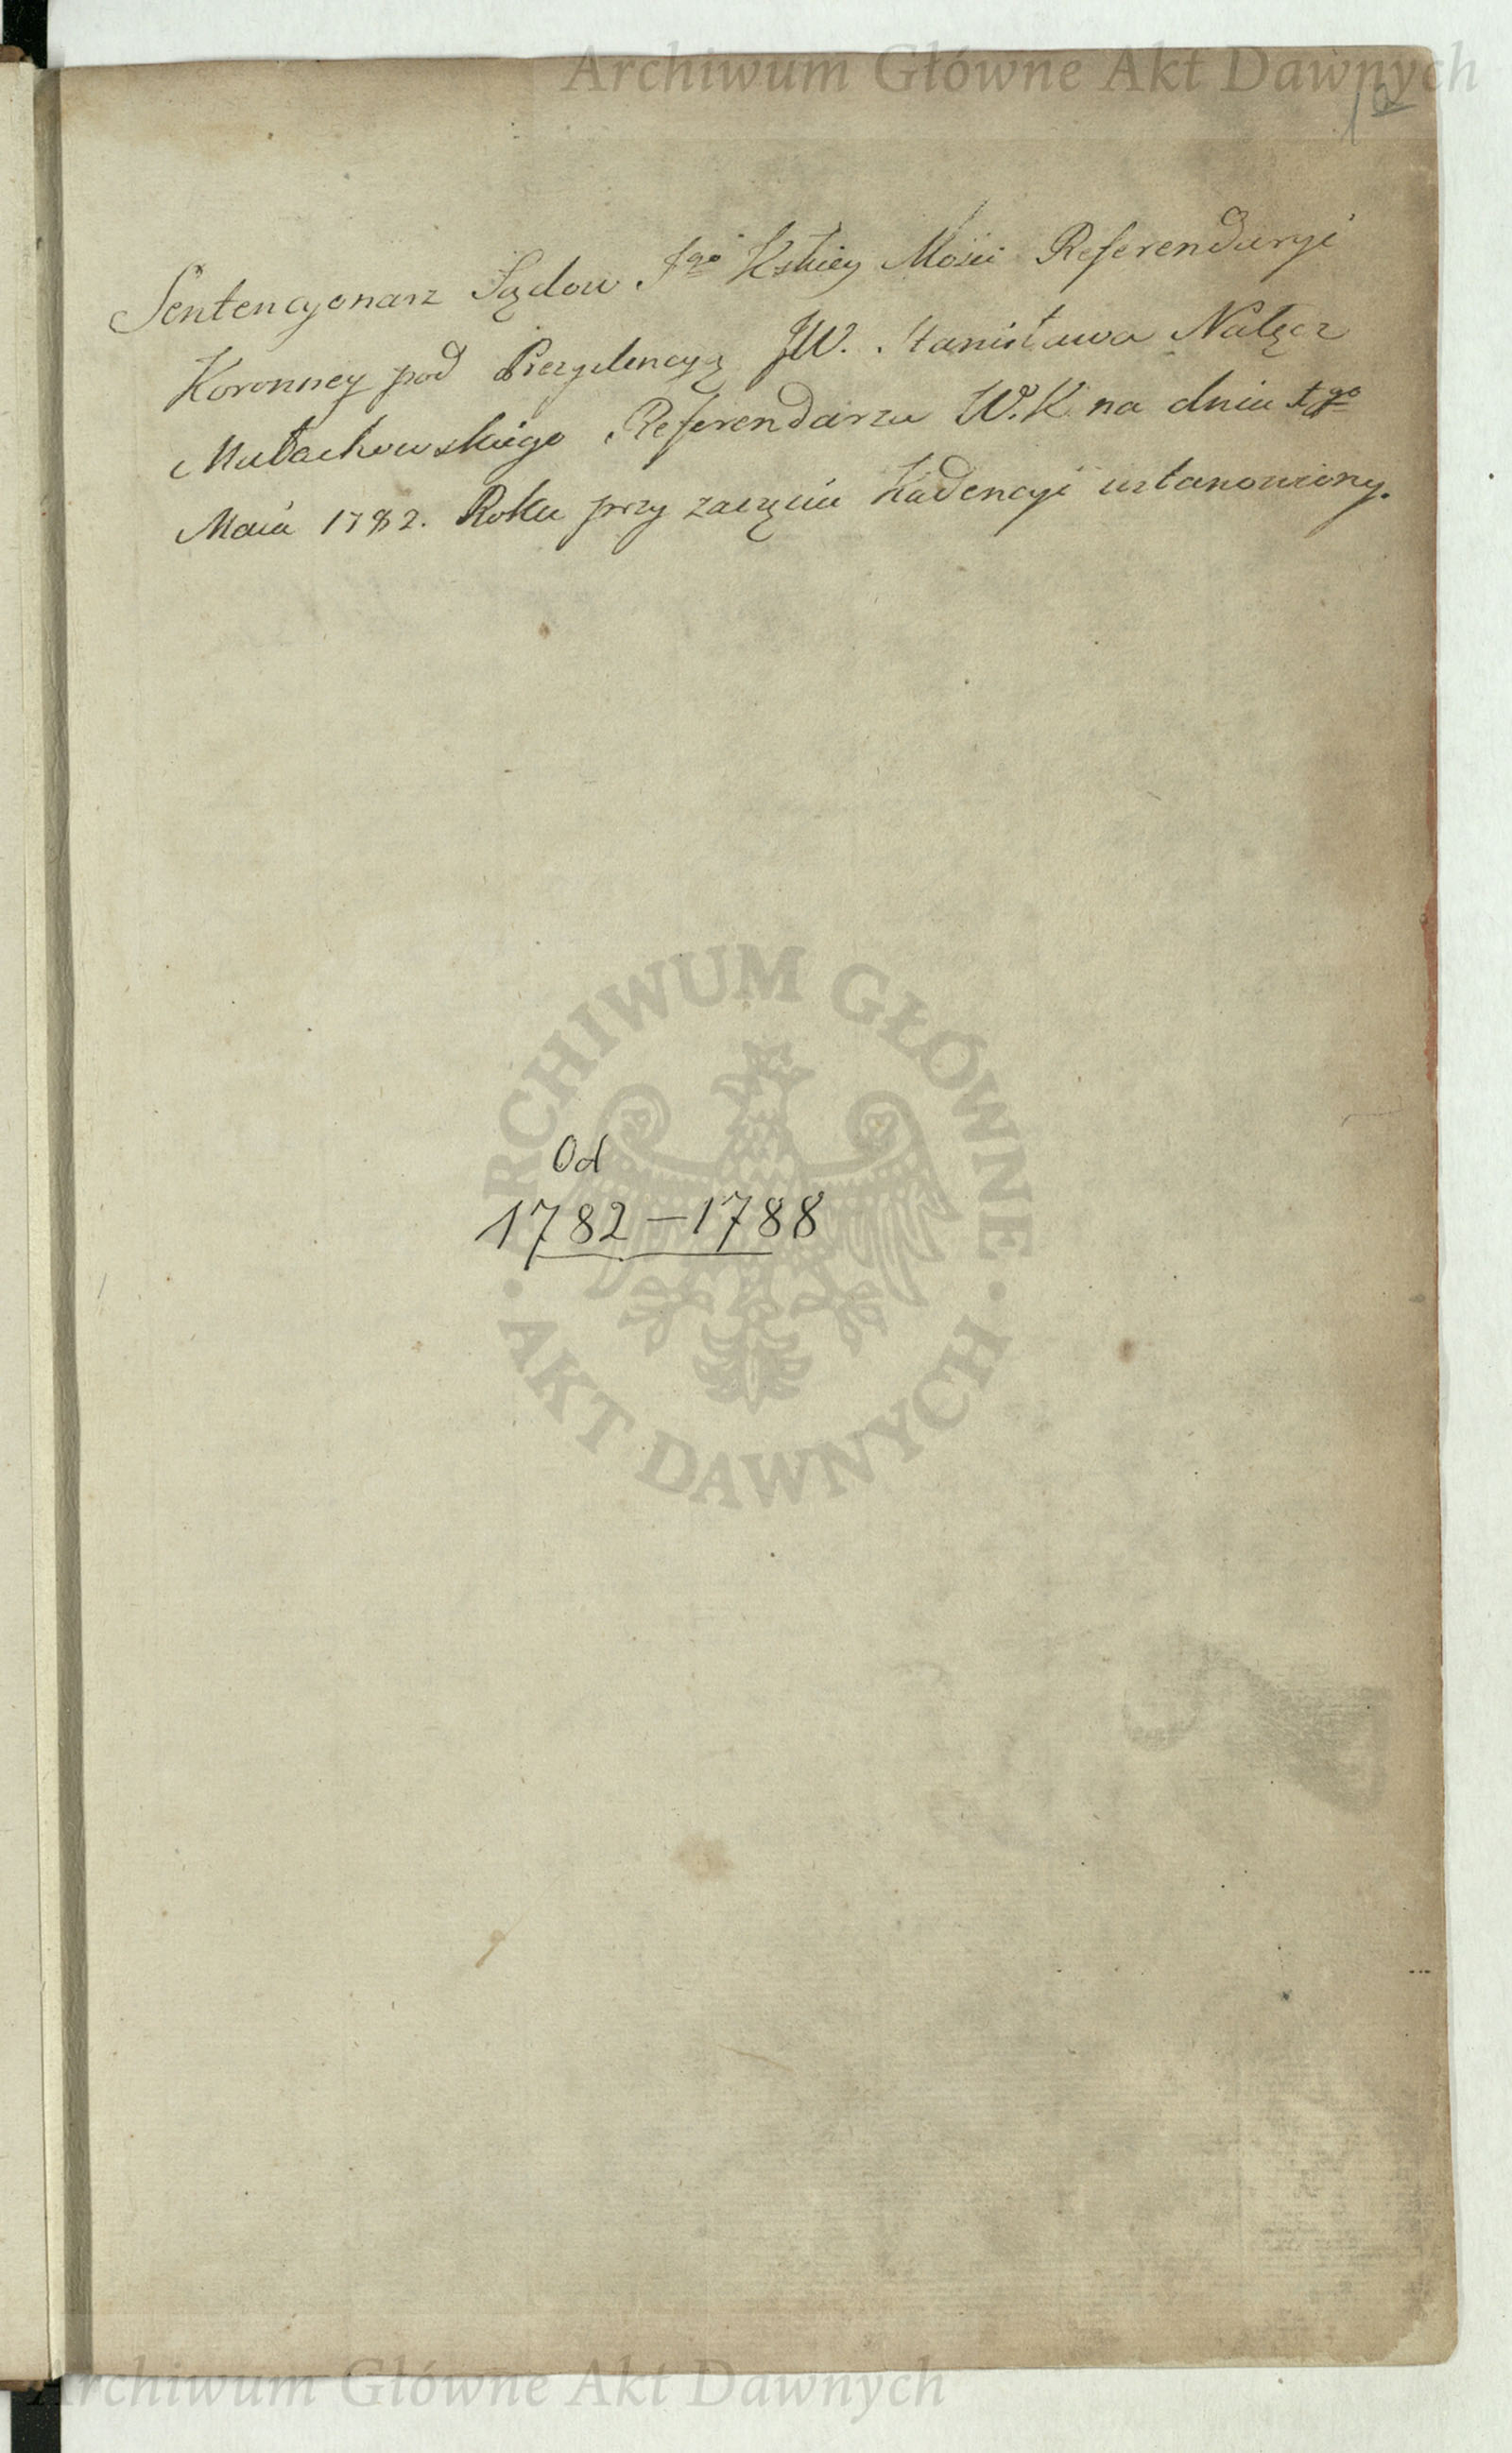 Archiwum Główne Akt Dawnych
Sentencyonarz Sądow Jgo Kskiey Mości Referendaryi
Koronney pod Prezydencyą JW. Stanisława Nałęcz
Małachowskiego Referendarza W.K. na dniu 1go
Maia 1782. Roku przy zaczęciu Kadencyi ustanowiony.
ARCHIWUM GŁÓWNE
Od
1782 – 1788
· AKT DAWNYCH ·
Archiwum Główne Akt Dawnych